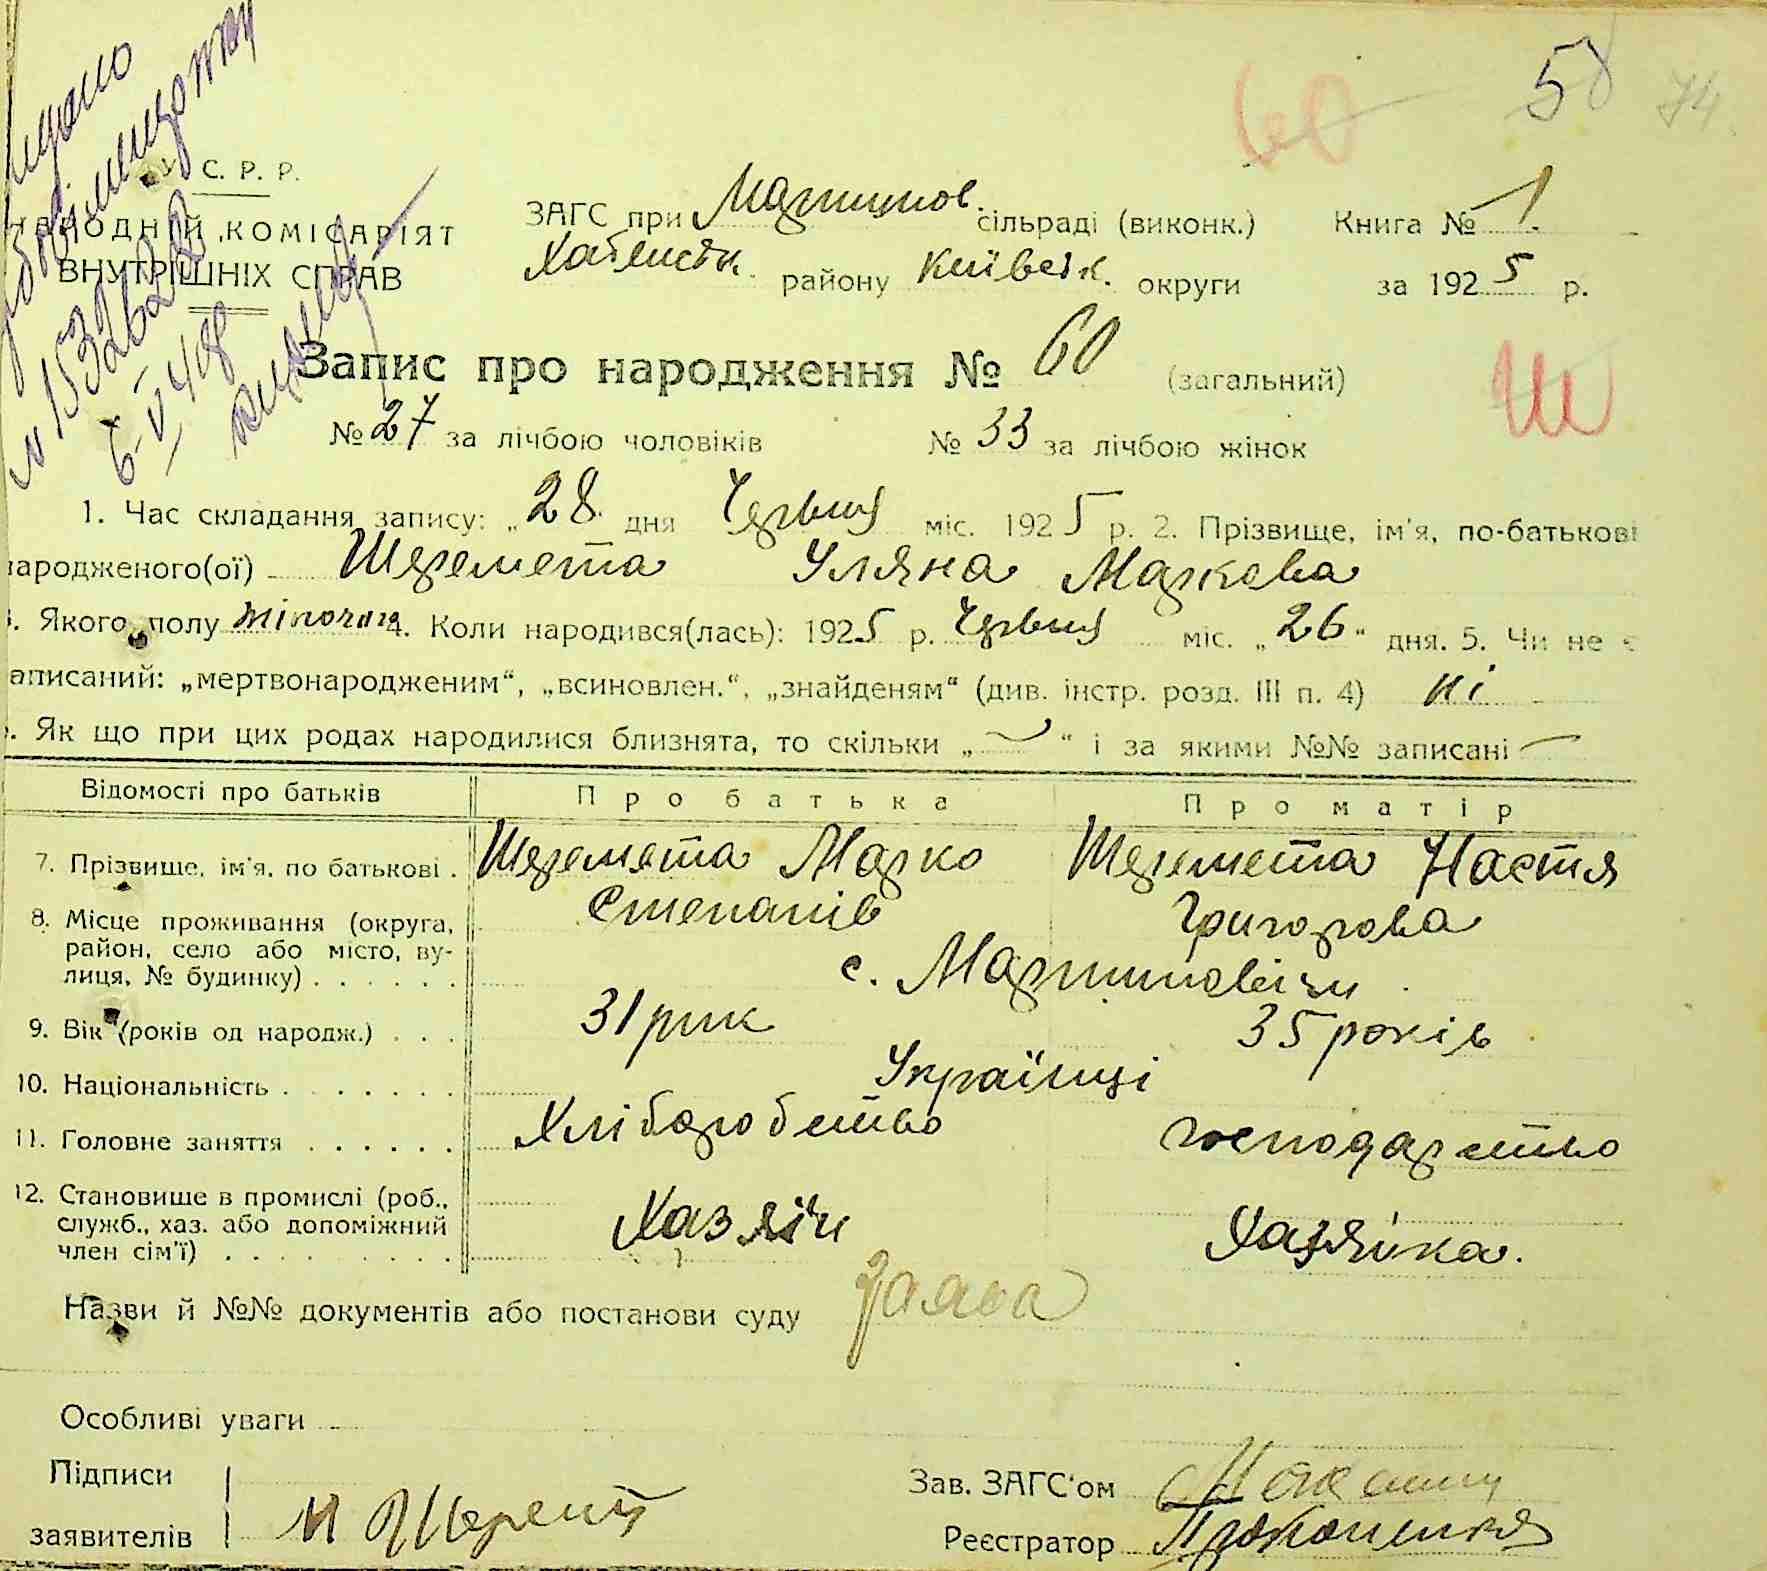 58 74
60
С. Р. Р.
НАРОДНІЙ КОМІСАРІЯТ
ВНУТРІШНІХ СПРАВ
№ 153262
6-V 40 р
ЗАГС при Мартинов. сільраді (виконк.) Книга № 1.
Хабенськ. району Київськ. округи за 1925 р.
Запис про народження № 60 (загальний)
Ш
№ 27 за лічбою чоловіків № 33 за лічбою жінок
1. Час складання запису: „28 дня Червня міс. 1925 р. 2. Прізвище, ім'я, по-батькові
народженого(ої) Шеремета Уляна Маркова
. Якого полу жіночого 4. Коли народився(лась): 1925 р. Червня міс. „26“ дня. 5. Чи не є
записаний: „мертвонародженим“, „всиновлен.“, „знайденям“ (див. інстр. розд. III п. 4) ні
. Як що при цих родах народилися близнята, то скільки „—“ і за якими №№ записані —
Відомості про батьків Про батька Про матір
7. Прізвище, ім'я, по батькові . Шеремета Марко Степанів Шеремета Настя Григорова
8. Місце проживання (округа,
район, село або місто, ву-
лиця, № будинку) . . . . . . с. Мартиновічи
9. Вік (років од народж.) . . . 31 рик 35 років
10. Національність . . . . . . . Українці
11. Головне заняття . . . . . . Хліборобство господарство
12. Становище в промислі (роб.,
служб., хаз. або допоміжний
член сім'ї) . . . . . . . . . Хазяїн Хазяїка.
Назви й №№ документів або постанови суду заява
Особливі уваги
Підписи
заявителів М Шеремет
Зав. ЗАГС'ом
Реєстратор Прокопенко